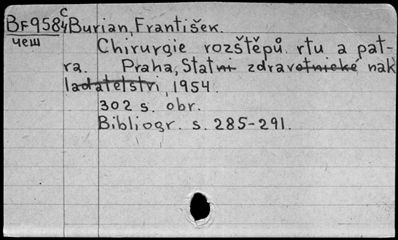 BF958 C/4 Burian, František.
чеш
Chirurgie rozštěpů rtu a pat-
ra. Praha, Statni zdravotnické nak
ladatelstvi, 1954.
302 s. obr.
Bibliogr. s. 285-291.